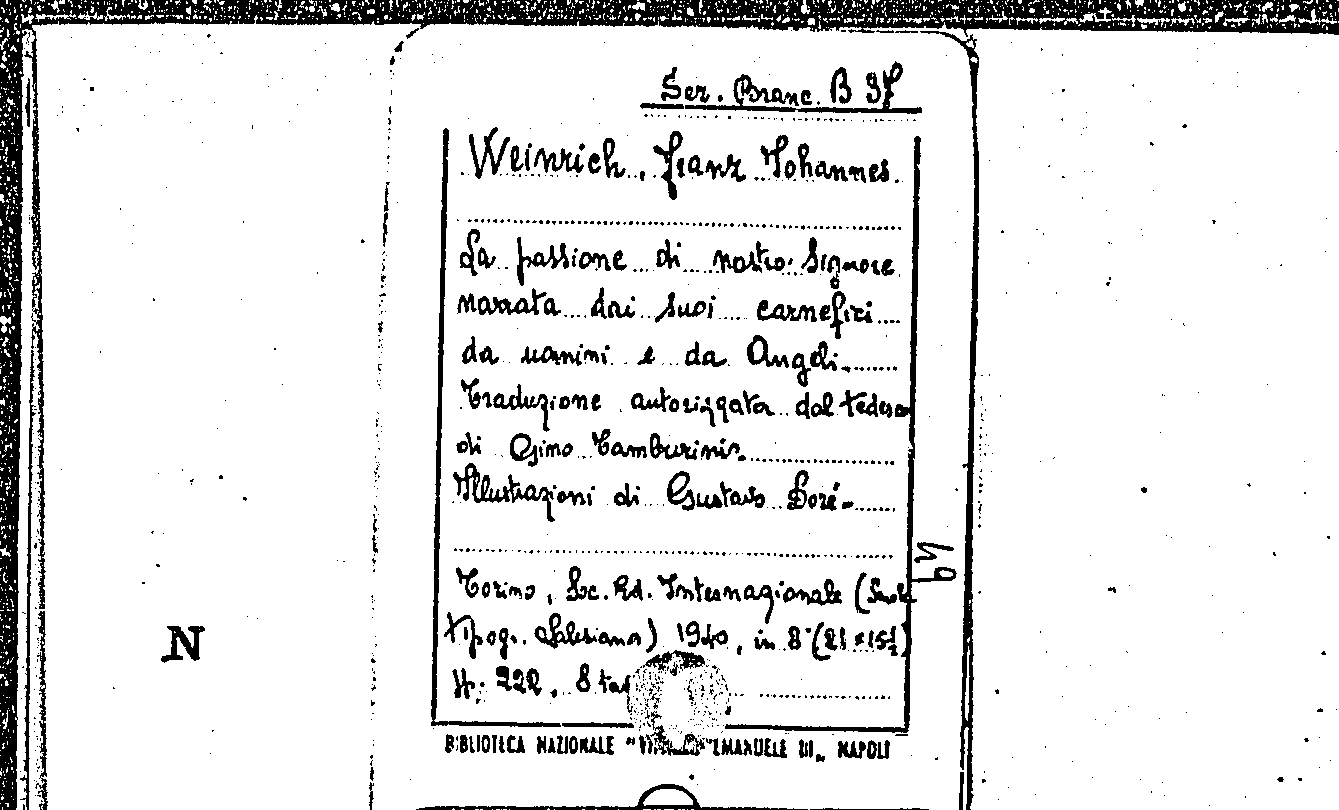 Ser. Branc. B 37
Weinrich, Franz Johannes.
La passione di nostro Signore
narrata dai suoi carnefici
da uomini e da Angeli.
Traduzione autorizzata dal tedesco
di Gino Tamburini.
Illustrazioni di Gustavo Doré.
Torino, Soc. Ed. Internazionale (Scuola
tipog. Salesiana) 1940, in 8° (21 x 15½)
pp. 222, 8 tav
BIBLIOTECA NAZIONALE "VITTORIO EMANUELE III„ NAPOLI
N